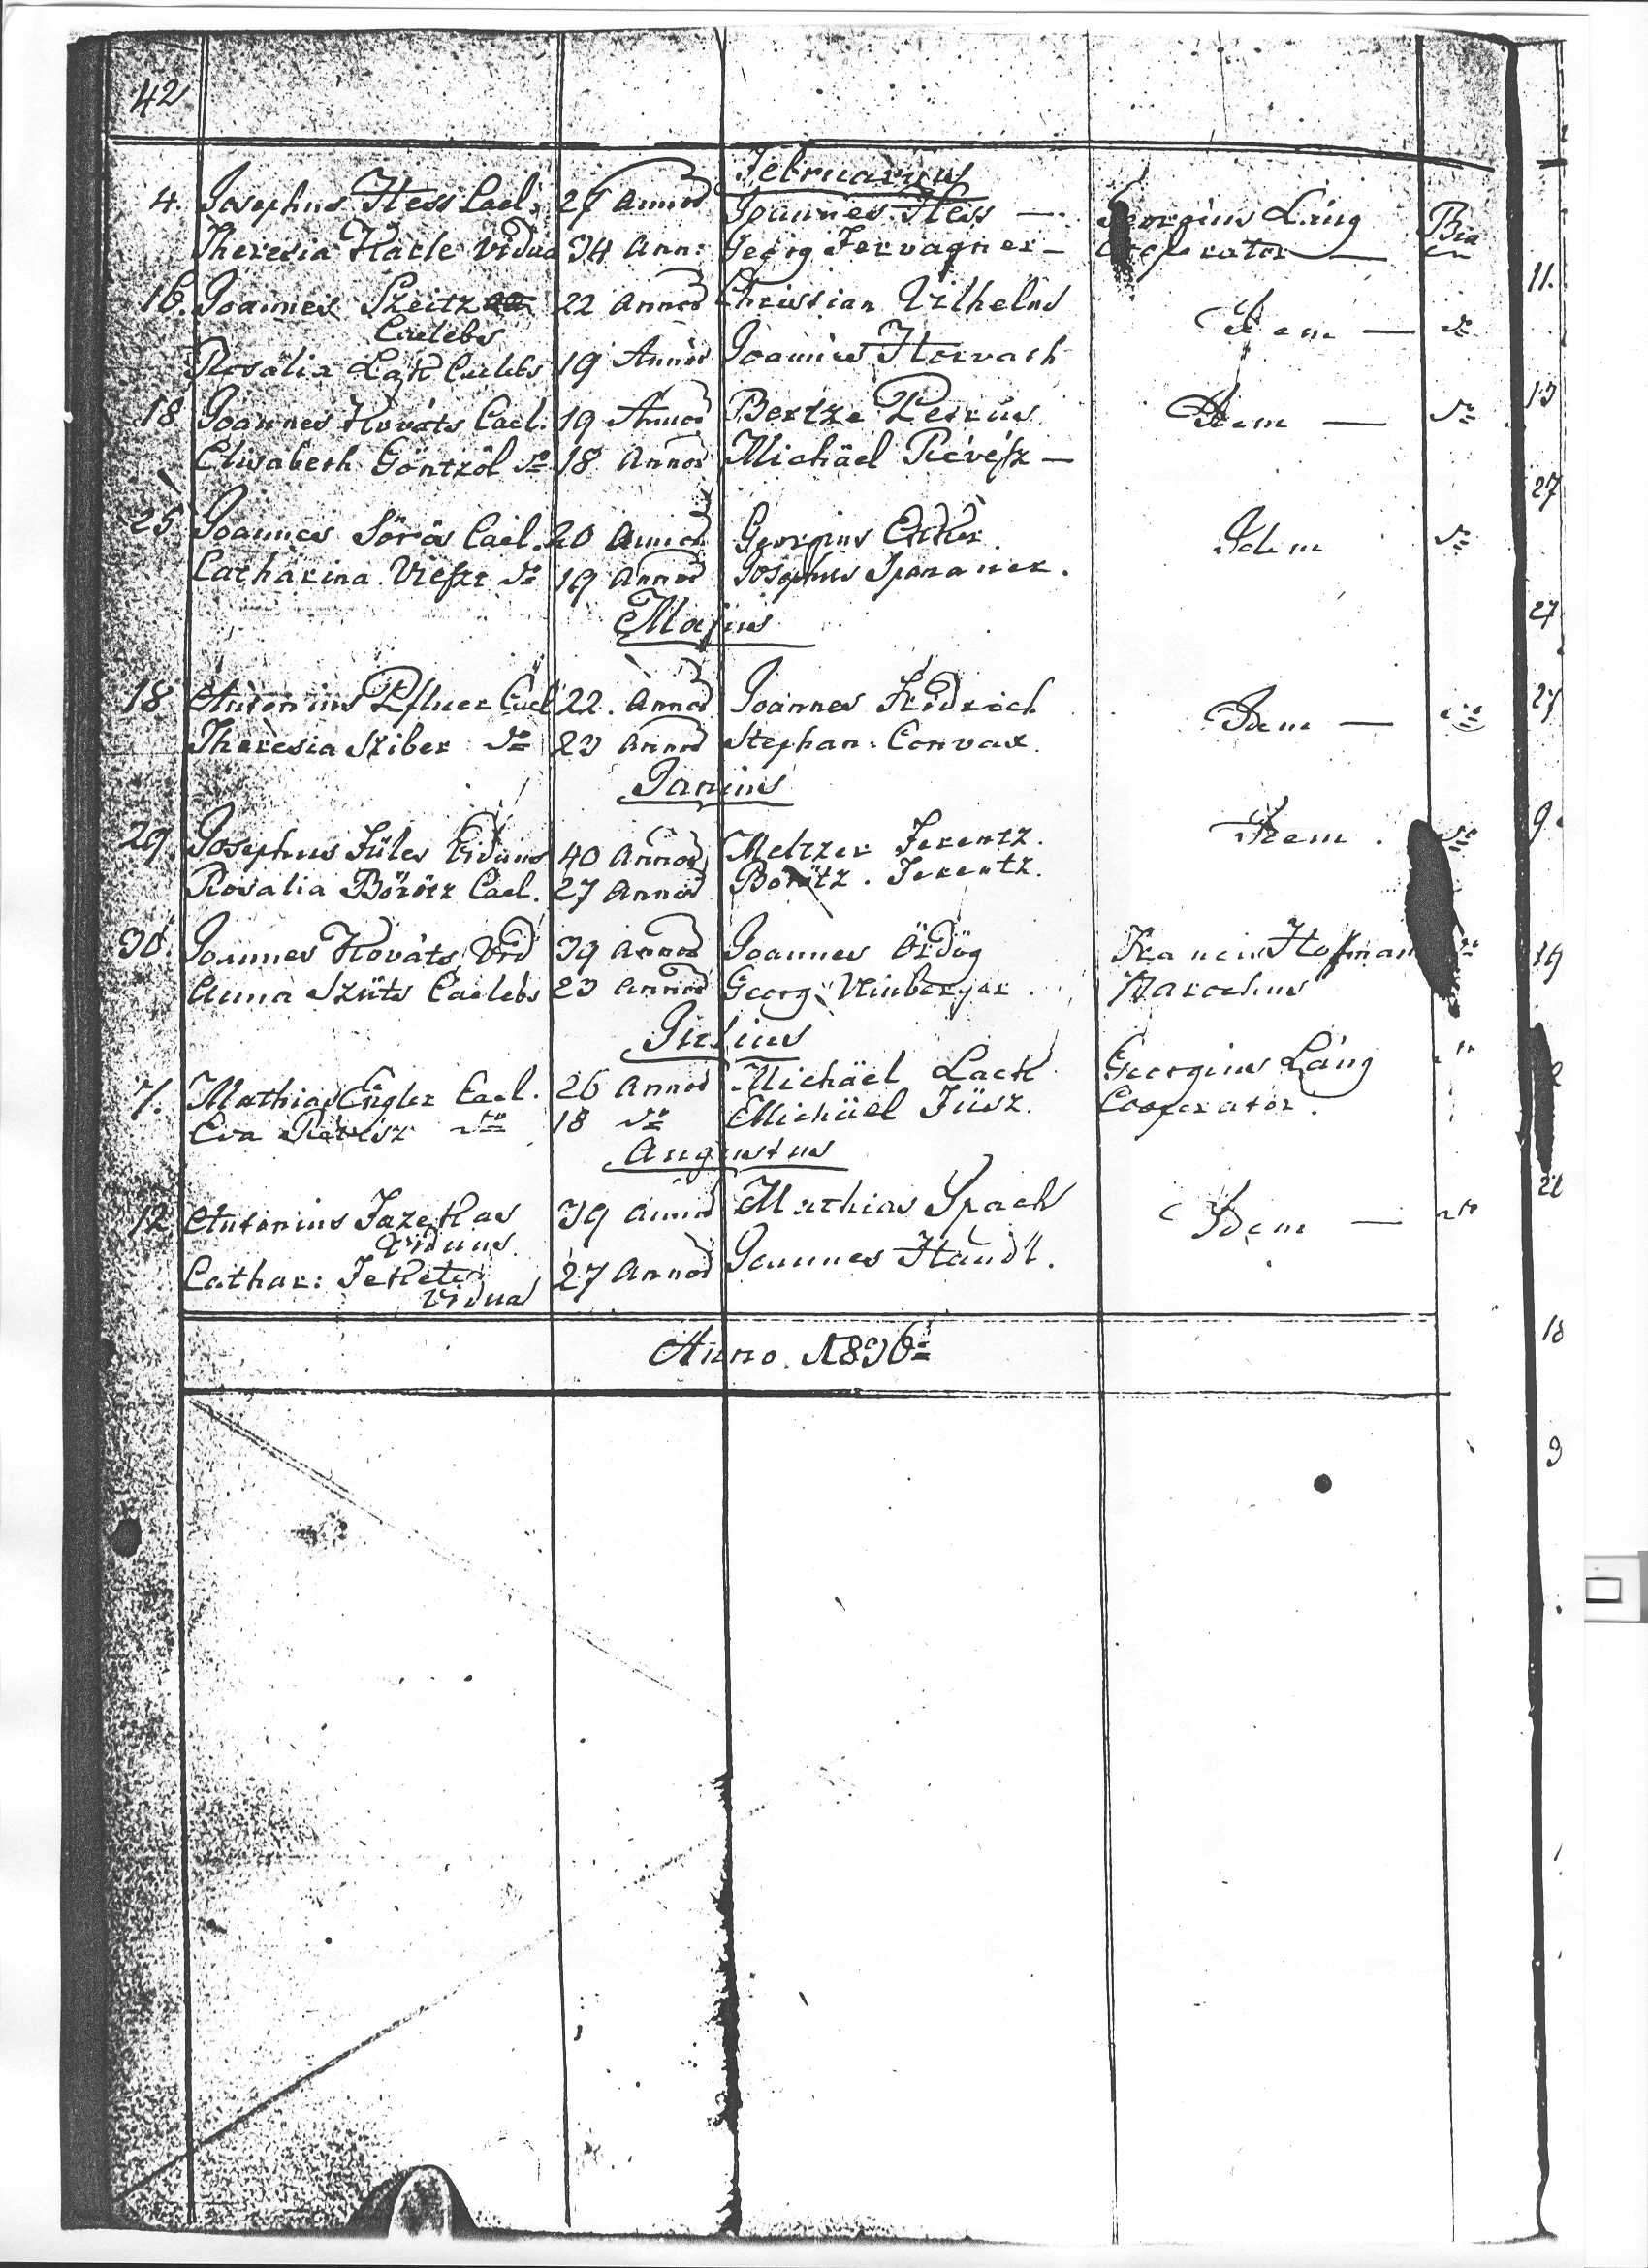 42
Februarius
4. Josephus Hess Cael: 27 Annor Joannes Hess — Georgius Láng Bia
Theresia Harle Vidua 34 Ann: Georg Fervagner — Cooperator —
16. Joannes Szeitz 22 Annor Christian Vilhelms
Caelebs Idem — do
Rosália Lak Caelebs 19 Annor Joannes Horvath
18 Joannes Kováts Cael: 19 Annor Bertze Petrus Idem — do
Elisabeth Göntzöl do 18 Annor Michäel Révész —
25 Joannes Sörös Cael. 20 Annor Georgius Idem do
Catharina do 19 Annor Josephus
Majus
18 Antonius Pfluer Cael 22. Annor Joannes Fridrich Idem — do
Theresia Sziber do 23 Annor Stephan: Convax.
Junius
29. Josephus Füles Viduus 40 Annor Metzer Ferentz. Idem. do
Rosalia Börötz Cael. 27 Annor Börötz. Ferentz.
30. Joannes Kováts Vid 39 Annor Joannes Ördög Hofman
Anna Szüts Caelebs 23 Annor Georg: Veinberger. Parochus
Julius
7. Mathias Engler Cael. 26 Annor Michäel Lack Georgius Láng
Eva Révész do 18 do Michäel Füsz. Cooperator.
Augustus
12 Antonius Fazekas 39 Annor Mathias Spach Idem —
Viduus.
Cathar: Fekete 27 Annor Joannes Haudl.
Vidua
Anno. 1836o
11.
13
27
27
27
9.
19
22
18
9